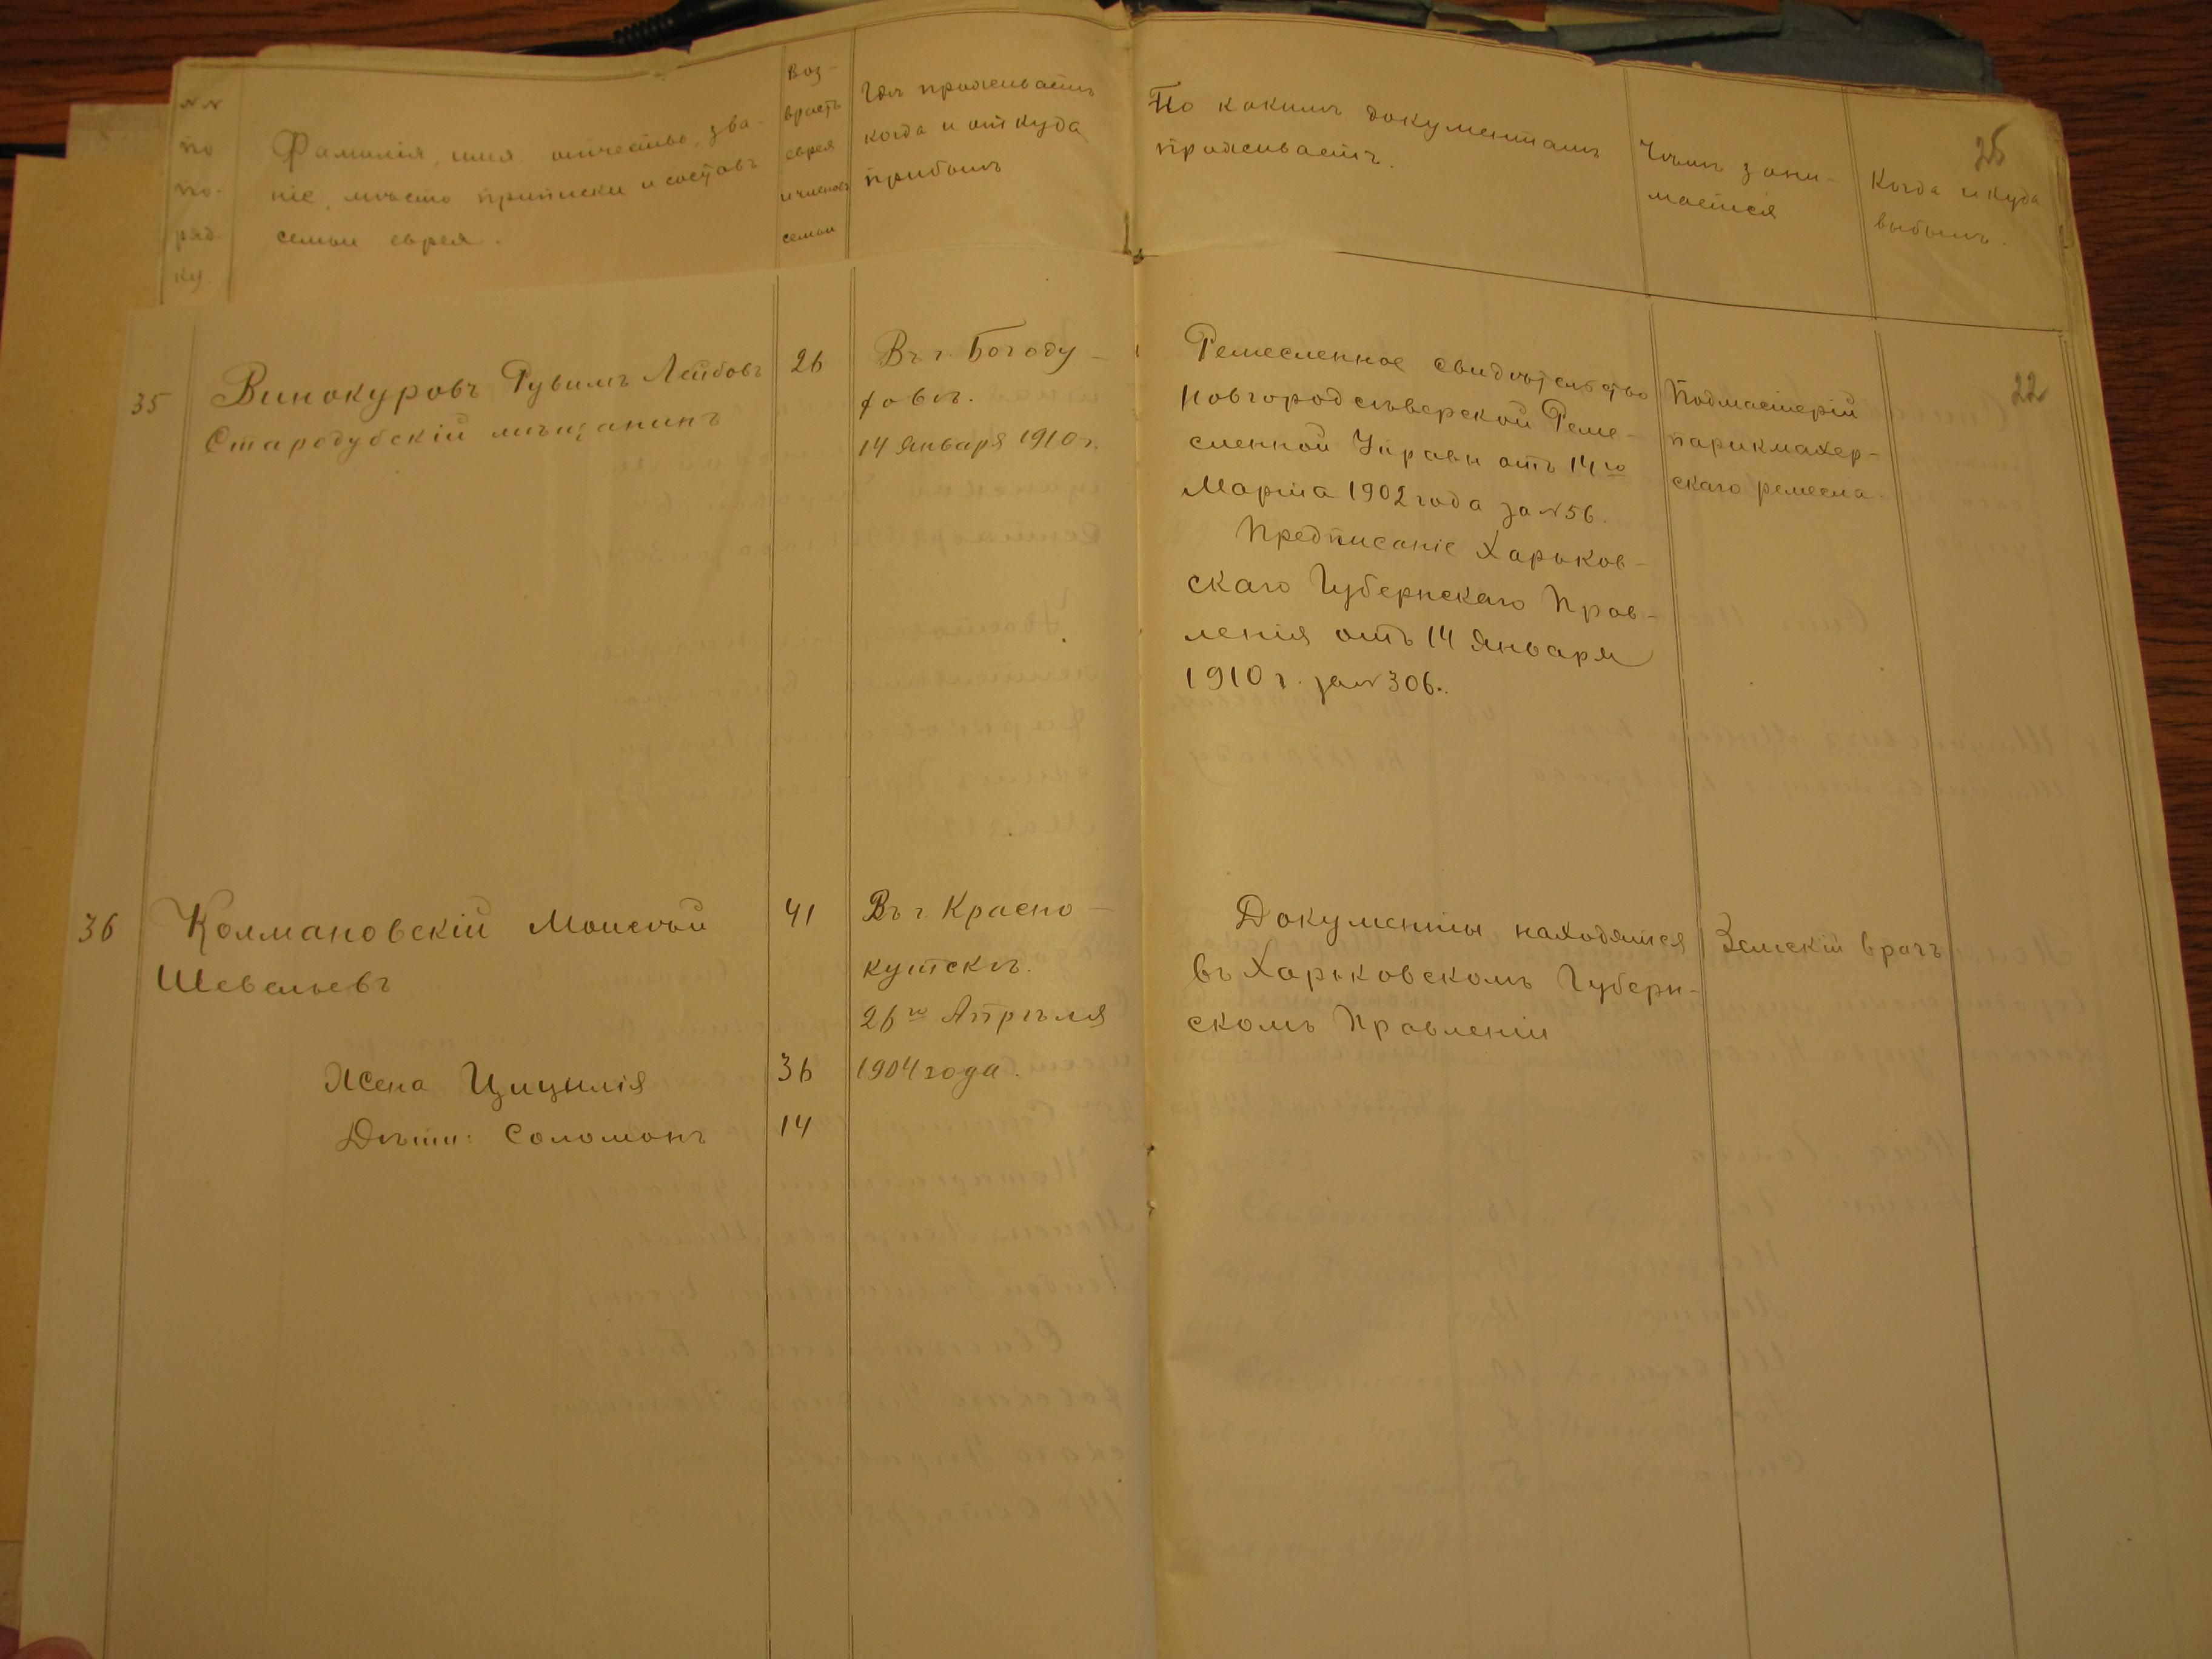 №№
по
по-
ряд-
ку.
Фамилія, имя отчество, зва-
ніе, мѣсто приписки и составъ
семьи еврея.
Воз-
растъ
еврея
и членовъ
семьи
Гдѣ проживаетъ
когда и откуда
прибылъ
По какимъ документамъ
проживаетъ.
Чѣмъ зани-
мается
Когда и куда
выбылъ.
26
35
Винокуровъ Рувимъ Лейбовъ
Стародубскій мѣщанинъ
26
Въ г. Богоду-
ховѣ.
14 Января 1910 г.
Ремесленное свидѣтельство
Новгородсѣверской Реме-
сленной Управы отъ 14го
Марта 1902 года за №56.
Предписаніе Харьков-
скаго Губернскаго Прав-
ленія отъ 14 Января
1910 г. за №306.
Подмастерій
парикмахер-
скаго ремесла.
22
36
Колмановскій Моисѣй
Шевельевъ
41
Въ г. Красно-
кутскѣ.
26го Апрѣля
1904 года.
Жена Цицилія
36
Дѣти: Соломонъ
14
Документы находятся
въ Харьковскомъ Губерн-
скомъ Правленіи
Земскій врачъ